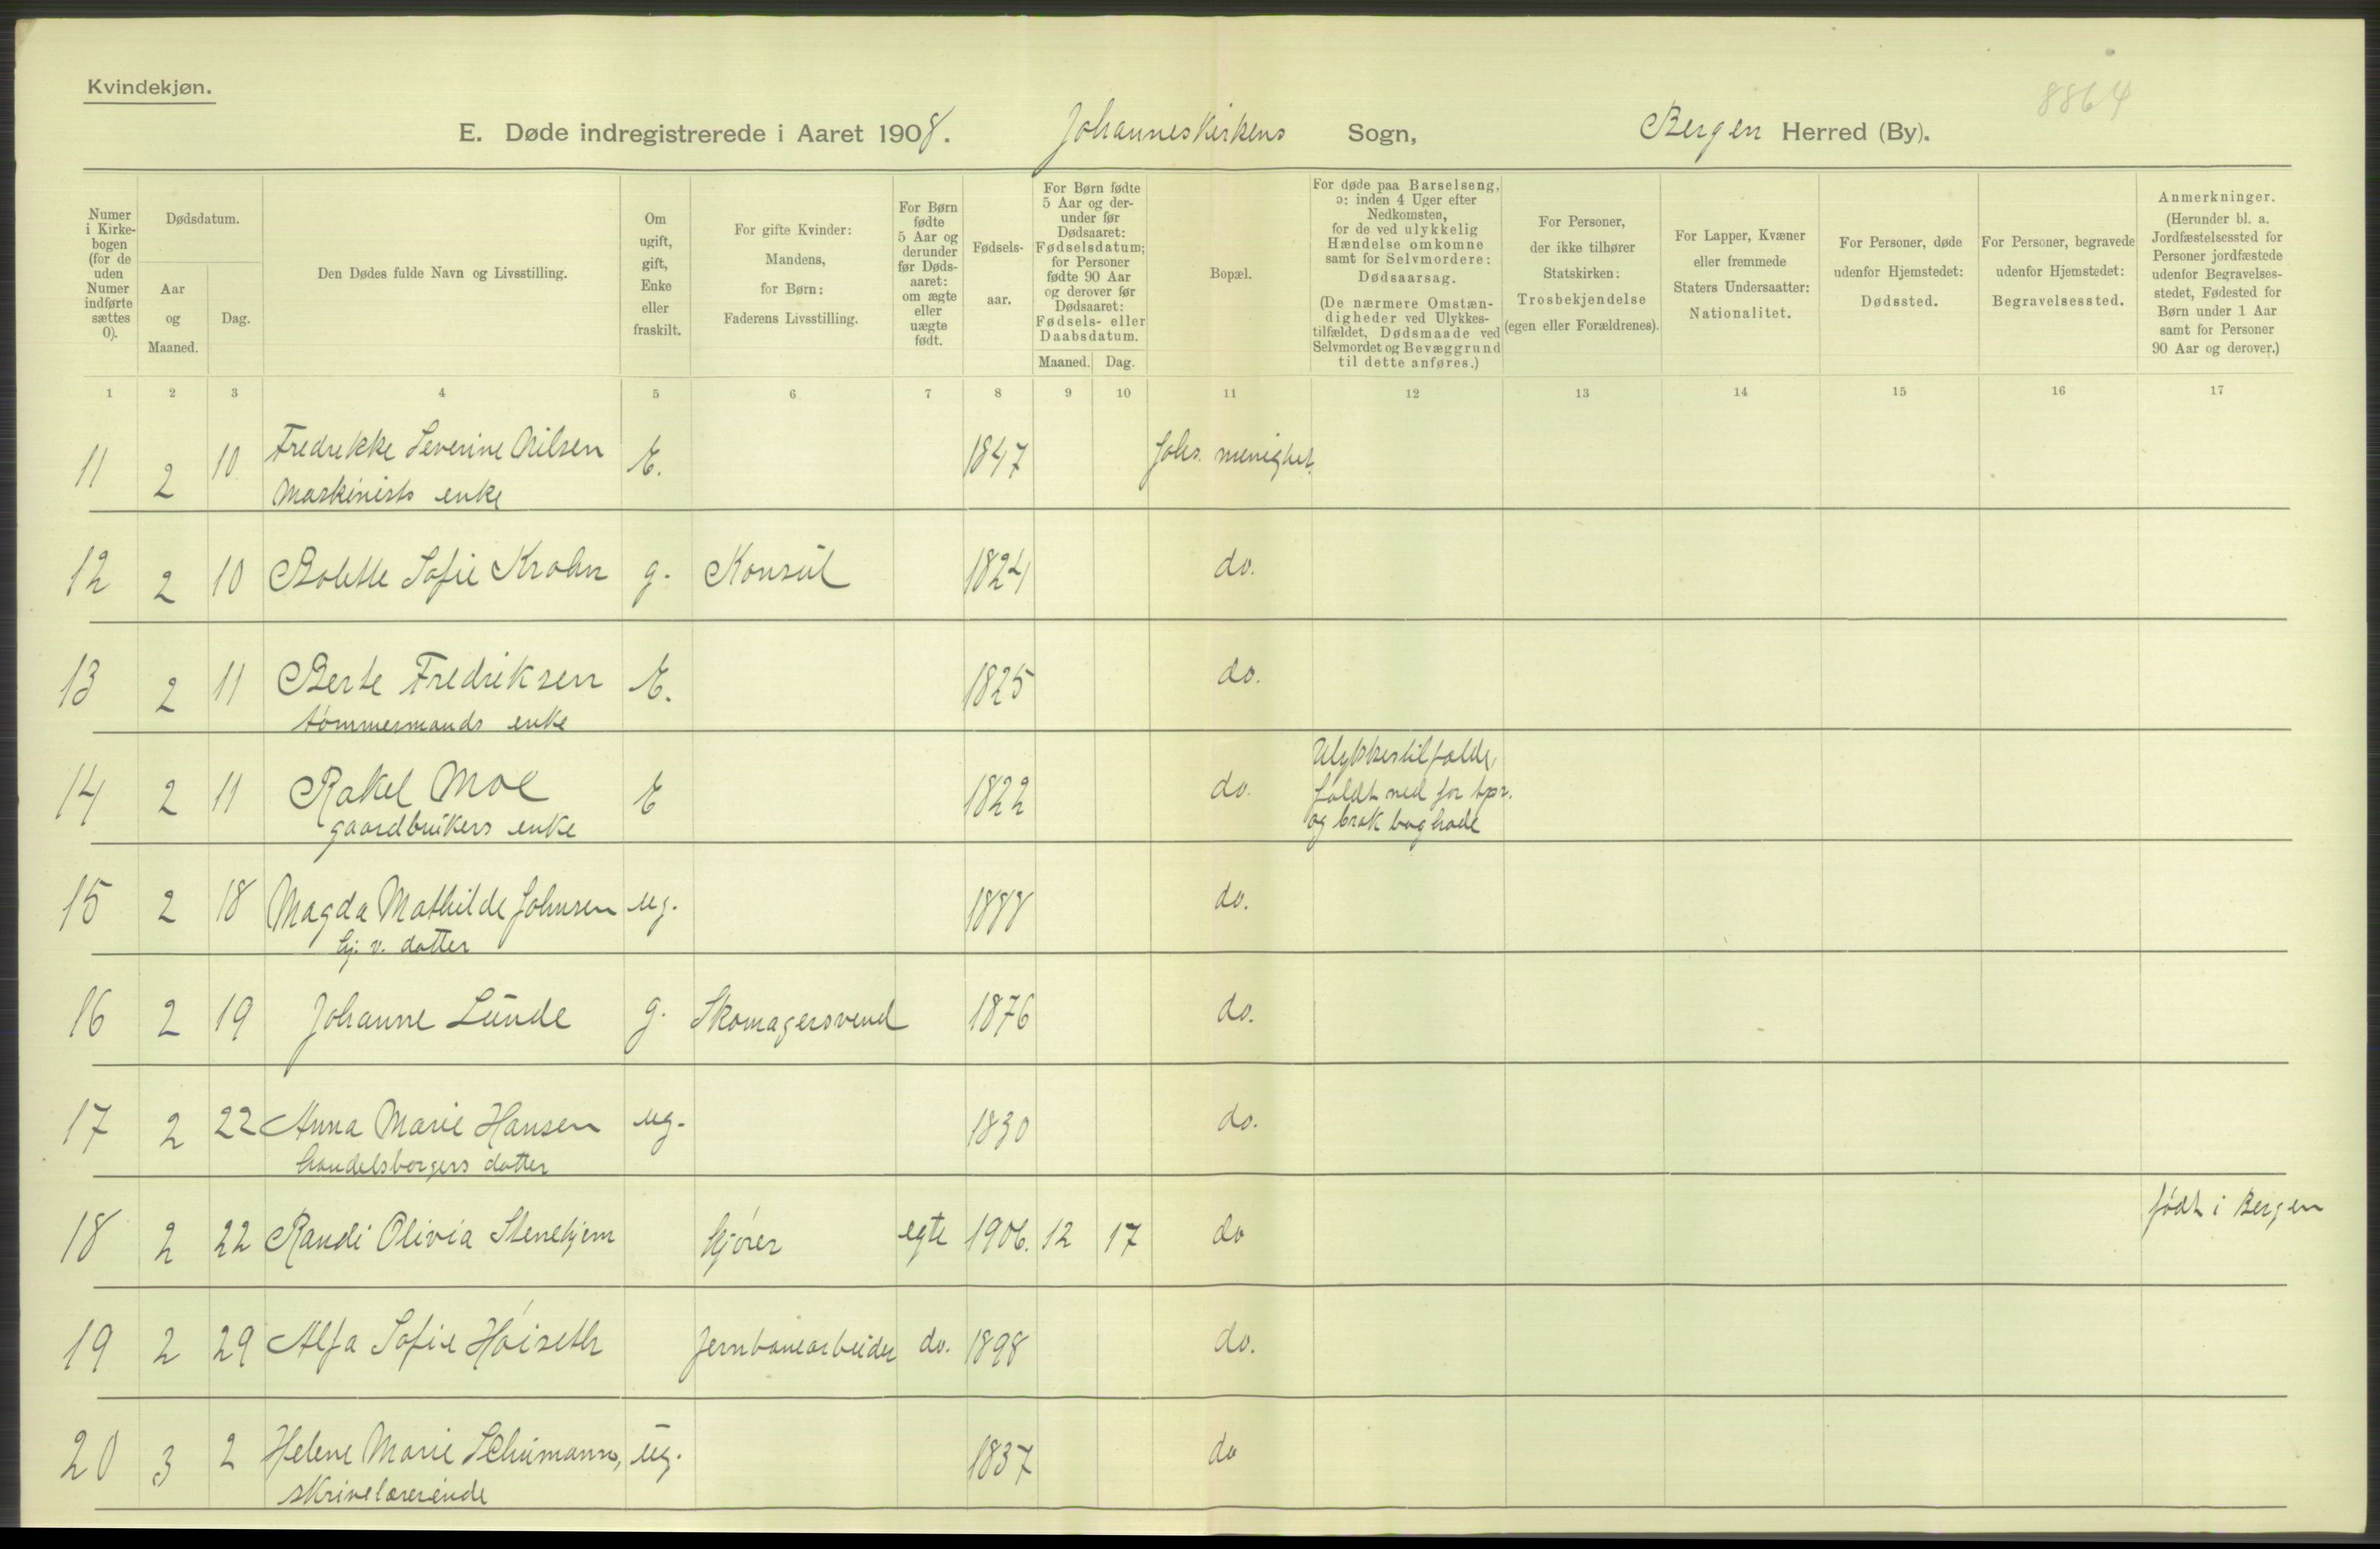 Kvindekjøn.
8864
E. Døde indregistrerede i Aaret 1908. Johanneskirkens Sogn, Bergen Herred (By).
Numer i Kirkebogen (for de uden Numer indførte sættes 0).
Dødsdatum.
Aar og Maaned.
Dag.
Den Dødes fulde Navn og Livsstilling.
Om ugift, gift, Enke eller fraskilt.
For gifte Kvinder: Mandens, for Børn: Faderens Livsstilling.
For Børn fødte 5 Aar og derunder før Dødsaaret: om ægte eller uægte født.
Fødselsaar.
For Børn fødte 5 Aar og derunder før Dødsaaret: Fødselsdatum; for Personer fødte 90 Aar og derover før Dødsaaret: Fødsels- eller Daabsdatum.
Maaned. Dag.
Bopæl.
For døde paa Barselseng, ɔ: inden 4 Uger efter Nedkomsten, for de ved ulykkelig Hændelse omkomne samt for Selvmordere: Dødsaarsag. (De nærmere Omstændigheder ved Ulykkestilfældet, Dødsmaade ved Selvmordet og Bevæggrund til dette anføres.)
For Personer, der ikke tilhører Statskirken: Trosbekjendelse (egen eller Forældrenes).
For Lapper, Kvæner eller fremmede Staters Undersaatter: Nationalitet.
For Personer, døde udenfor Hjemstedet: Dødssted.
For Personer, begravede udenfor Hjemstedet: Begravelsessted.
Anmerkninger. (Herunder bl. a. Jordfæstelsessted for Personer jordfæstede udenfor Begravelsesstedet, Fødested for Børn under 1 Aar samt for Personer 90 Aar og derover.)
1 2 3 4 5 6 7 8 9 10 11 12 13 14 15 16 17
11 2 10 Fredrekke Severine Nilsen E. 1847 Johs. menighet.
Maskinists enke
12 2 10 Bolette Sofie Krohn g. Konsul 1824 do.
13 2 11 Berte Fredriksen E. 1825 do.
tømmermands enke
14 2 11 Rakel Moe E 1822 do. Ulykkestilfælde,
faldt ned for tpr.
gaardbrukers enke og brak baghode
15 2 18 Magda Mathilde Johnsen ug. 1888 do.
hj. v. datter
16 2 19 Johanne Lunde g. Skomagersvend 1876 do.
17 2 22 Anna Marie Hansen ug. 1830 do.
handelsborgers datter
18 2 22 Randi Olivia Stenehjem kjører egte 1906. 12 17 do født i Bergen
19 2 29 Alfa Sofie Høiseth Jernbanearbeider do. 1898 do.
20 3 2 Helene Marie Schumann, ug. 1837 do
skrivelærerinde